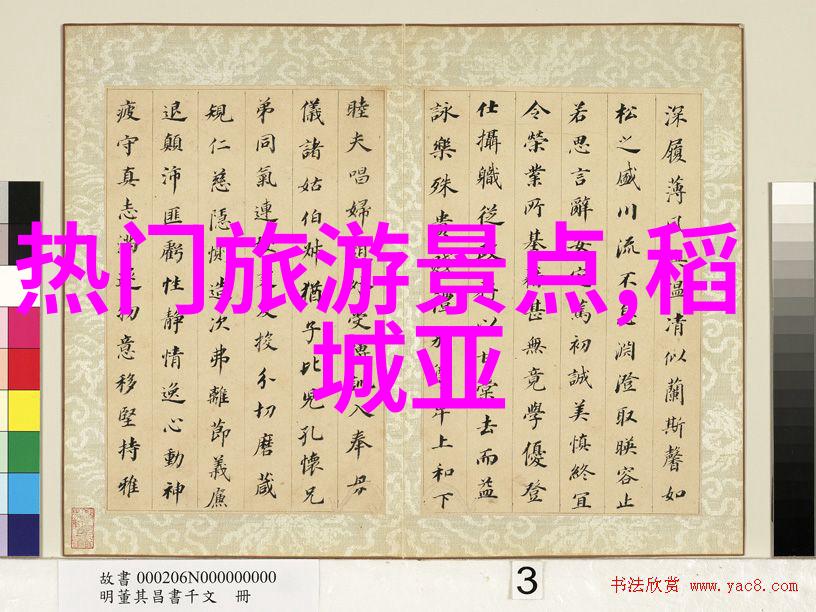 热门旅游景点,稻
城亚
深履薄温清似蘭斯馨如
松之盛川流不息淵澄取暎容止
若思言辭安定篤初誠美慎終宜
令榮業所基甚無竟學優登
仕攝職從以甘棠去而益
詠樂殊上和下
睦夫唱婦受訓入奉母
儀諸姑伯叔猶子比兒孔懷兄
弟同氣連投分切磨箴
規仁慈隱惻造次弗離節義廉
退顛沛匪虧性靜情逸心動神
疲守真志滿逐物意移堅持雅
故書 000206N000000000
明董其昌書千文 冊
3
书法欣赏 www.yac8.com